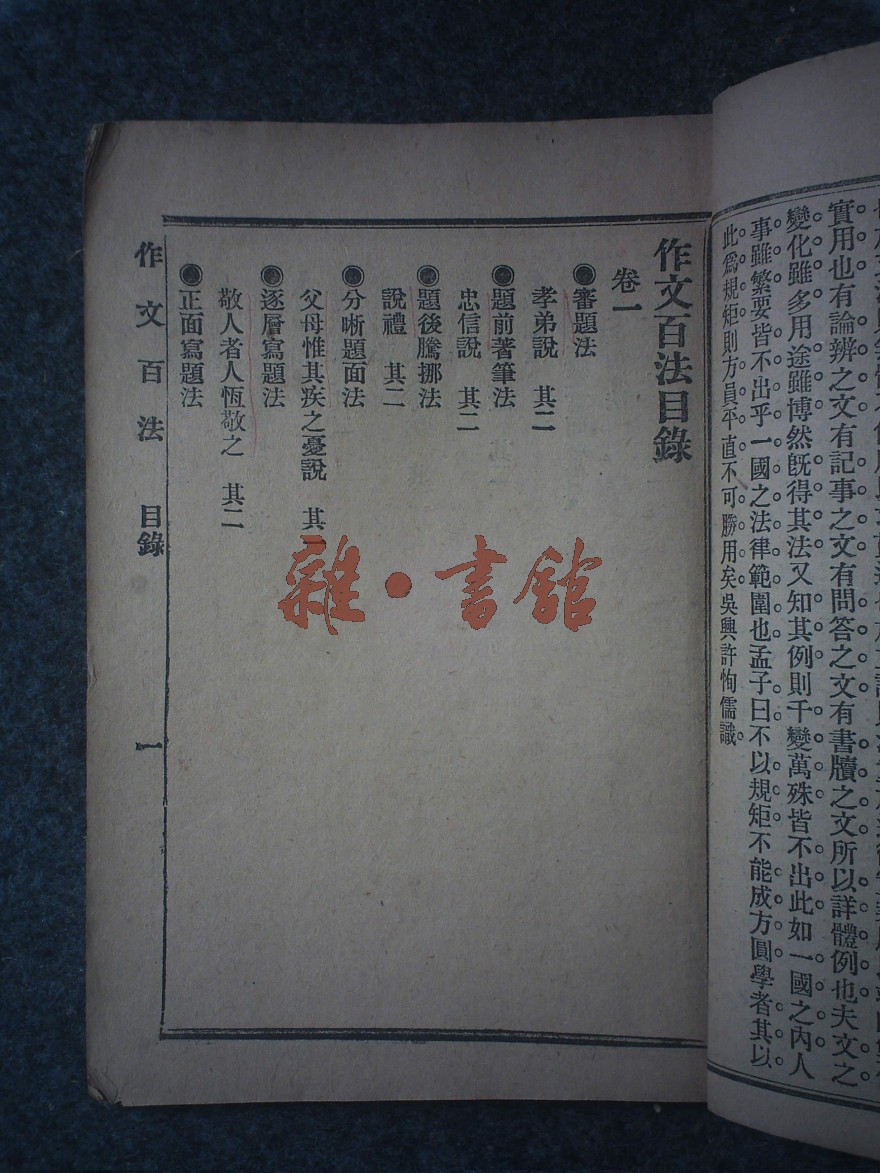 實用也有論辨之文有記事之文有問答之文有書牘之文所以詳體例也夫文之
變化雖多用途雖博然旣得其法又知其例則千變萬殊皆不出此如一國之內人
事雖繁要皆不出乎一國之法律範圍也孟子曰不以規矩不能成方圓學者其以
此爲規矩則方員平直不可勝用矣吳興許恂儒識
作文百法目錄
卷一
●審題法
孝弟說 其二
●題前著筆法
忠信說 其二
●題後騰挪法
說禮 其二
●分晰題面法
父母惟其疾之憂說 其二
●逐層寫題法
敬人者人恆敬之 其二
●正面寫題法
作文百法 目錄 一
雜·書館